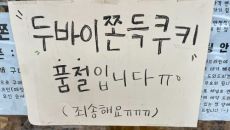 "두바이쫀득쿠키"
품절입니다ㅠ。
(죄송해요ㅠㅠㅠ)